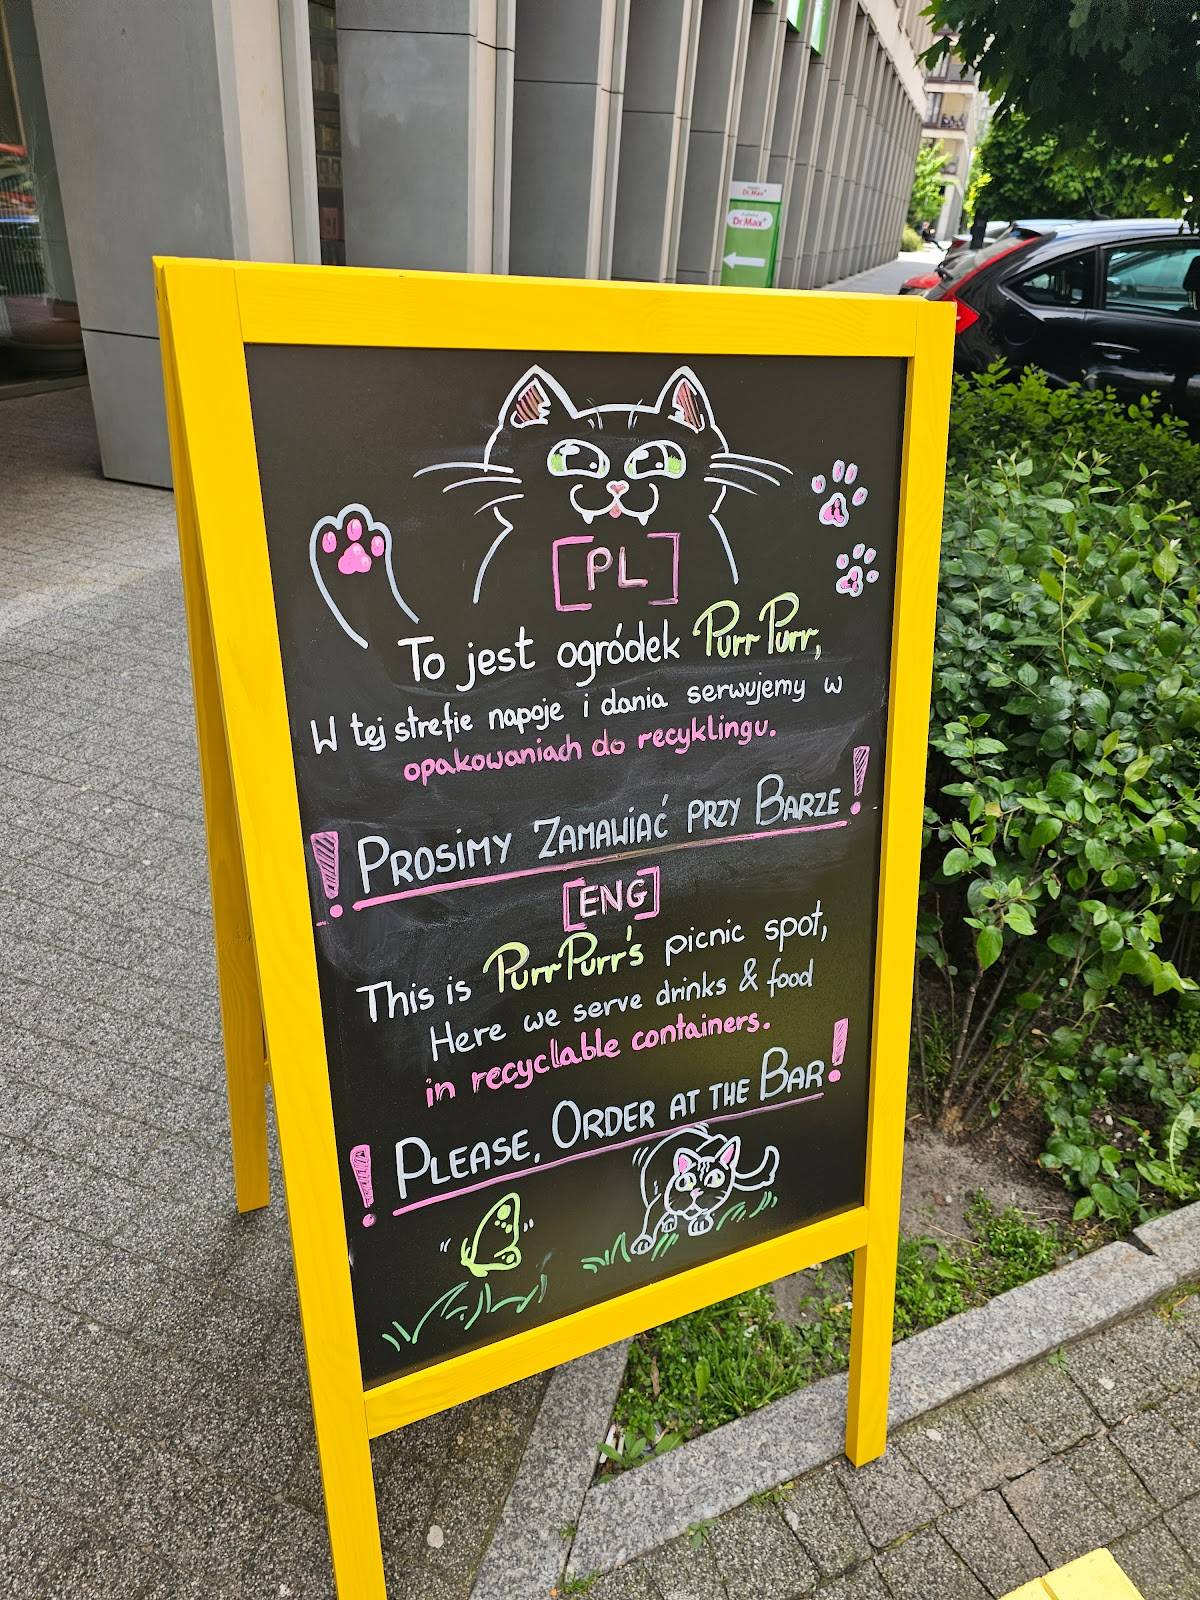 Dr.Max+
Dr.Max+
[PL]
To jest ogródek PurrPurr,
W tej strefie napoje i dania serwujemy w
opakowaniach do recyklingu.
! PROSIMY ZAMAWIAĆ PRZY BARZE !
[ENG]
This is PurrPurr's picnic spot,
Here we serve drinks & food
in recycllable containers.
! PLEASE, ORDER AT THE BAR !